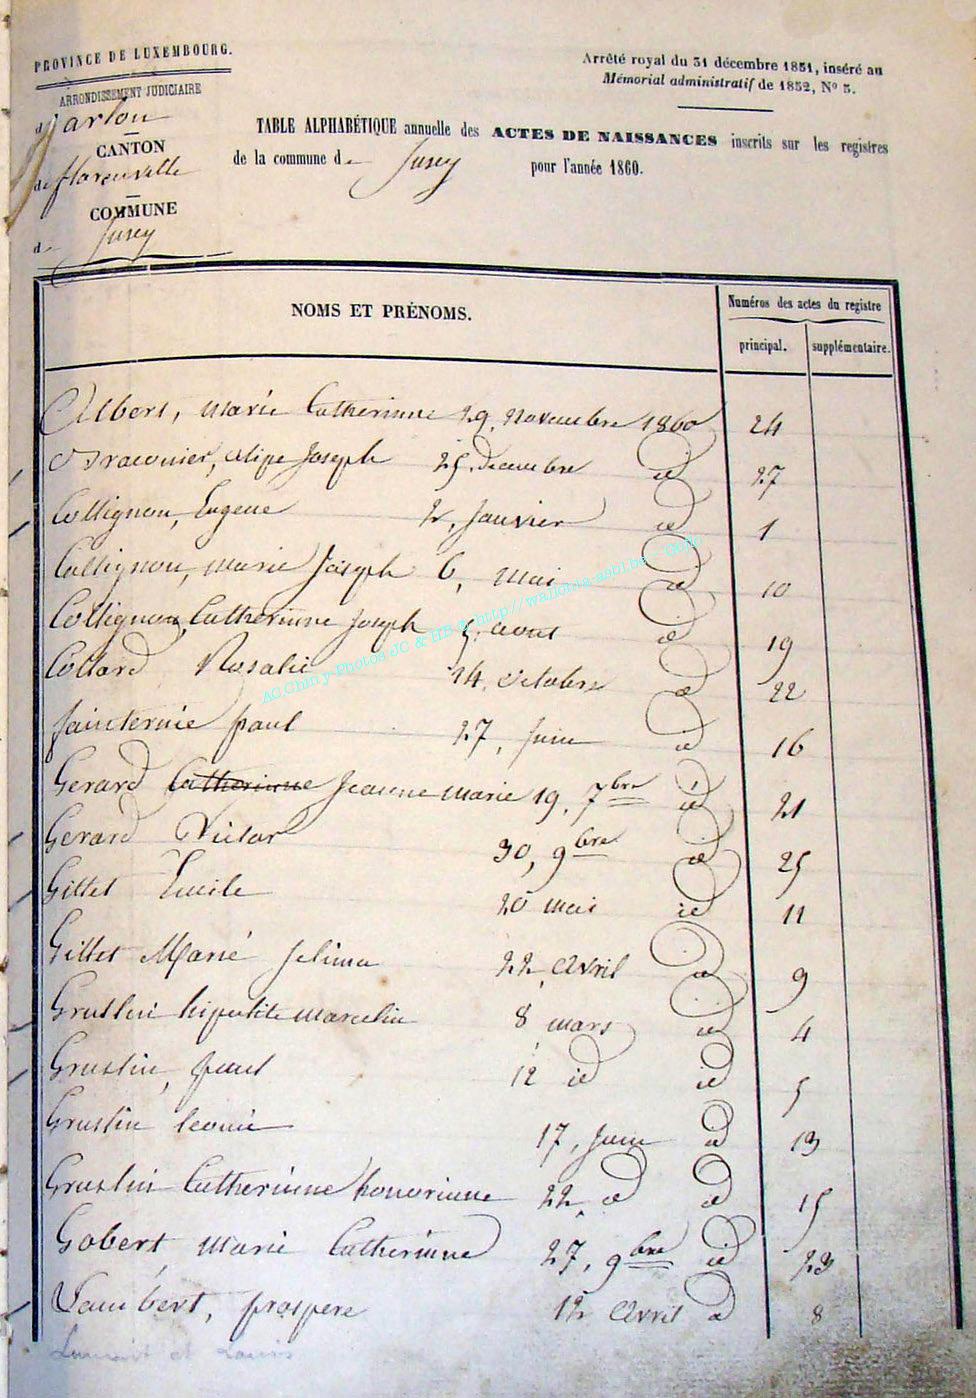 PROVINCE DE LUXEMBOURG.
ARRONDISSEMENT JUDICIAIRE
d'arlon
CANTON
de florenville
COMMUNE
de Jusey
Arrêté royal du 31 décembre 1851, inséré au
Mémorial administratif de 1852, Nº 5.
TABLE ALPHABÉTIQUE annuelle des ACTES DE NAISSANCES inscrits sur les registres
de la commune de Jusey pour l'année 1860.
NOMS ET PRÉNOMS.
Numéros des actes du registre
principal. supplémentaire.
Albert, marie Catherinne 29, Novembre 1860 24
Braconier, alipe Joseph 25, decembre id 27
Collignon, Eugene 2, Janvier id 1
Collignon, marie Joseph 6, mai id 10
Collignon, Catherinne Joseph 5, aout id 19
Collard Rosalie 14, octobre id 22
Jainternie paul 27, Juin id 16
Gerard Catherinne Jeanne marie 19, 7bre id 21
Gerard Victor 30, 9bre id 25
Gillet Lucile 20 mai id 11
Gillet Marie Jelima 22, Avril id 9
Gruslin hipolite marcelin 8 mars id 4
Gruslin, paul 12 id id 5
Gruslin leonie 17, Juin id 13
Gruslin Catherinne honorinne 22, id id 15
Gobert, marie Catherinne 27, 9bre id 23
Lambert, prospere 12 Avril id 8
AC Chiny - Photos JC & HB © http://wallonia-asbl.be - Geneo